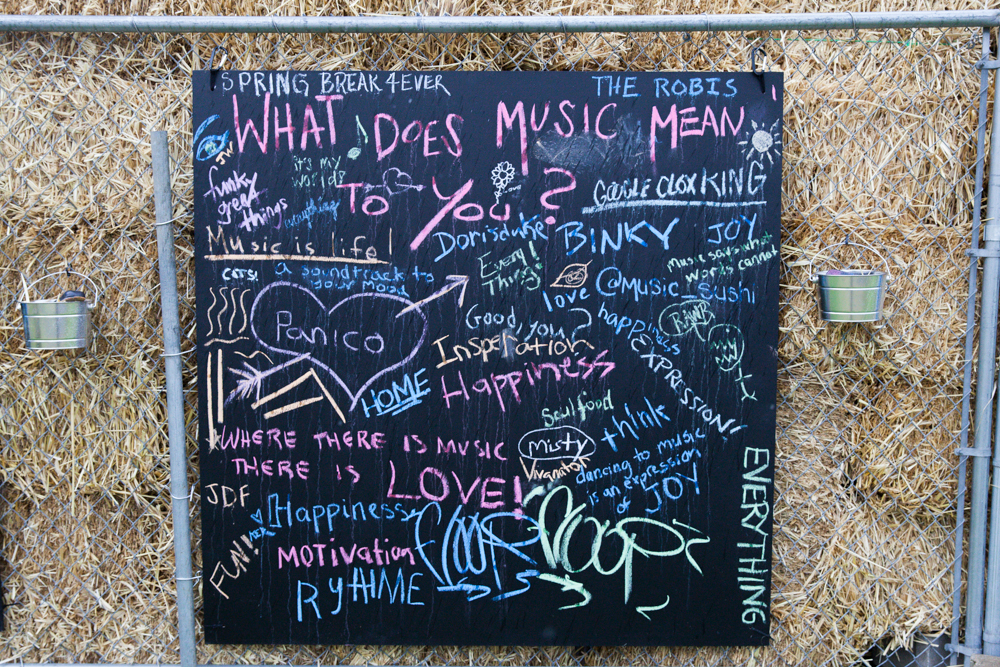 SPRING BREAK 4EVER
THE ROBIS
WHAT DOES MUSIC MEAN
TO You?
JW
it's my
world!
funky
great
things
everything
GOOGLE OLOX KING
Dorisduke
BINKY
JOY
Music is life!
CATS!
a soundtrack to
your mood
Every!
Thing!
music says what
words cannot
love
@Music_sushi
Panico
Good, you?
happiness
RAWB
Insperation
EXPRESSION!!
Happiness
HOME
Soulfood
think
WHERE THERE IS MUSIC
THERE IS LOVE!
Misty
Vivanator
dancing to music
is an expression
of JOY
JDF
Happiness
FUN!!
MOTIVATION
RYTHME
EVERYTHING